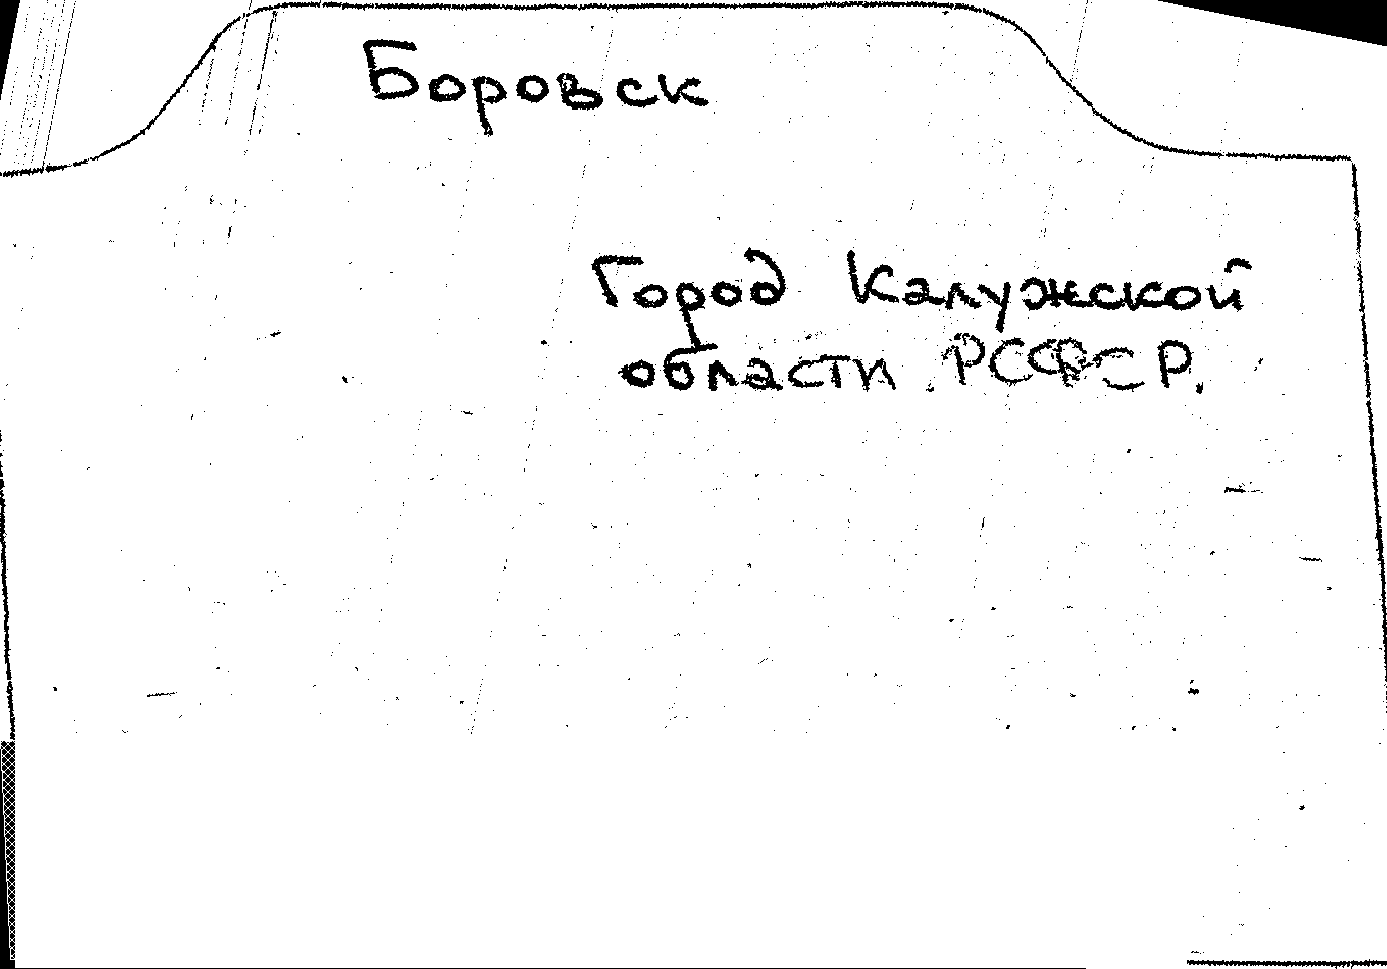 Боровск
Город Калужской
области РСФСР.